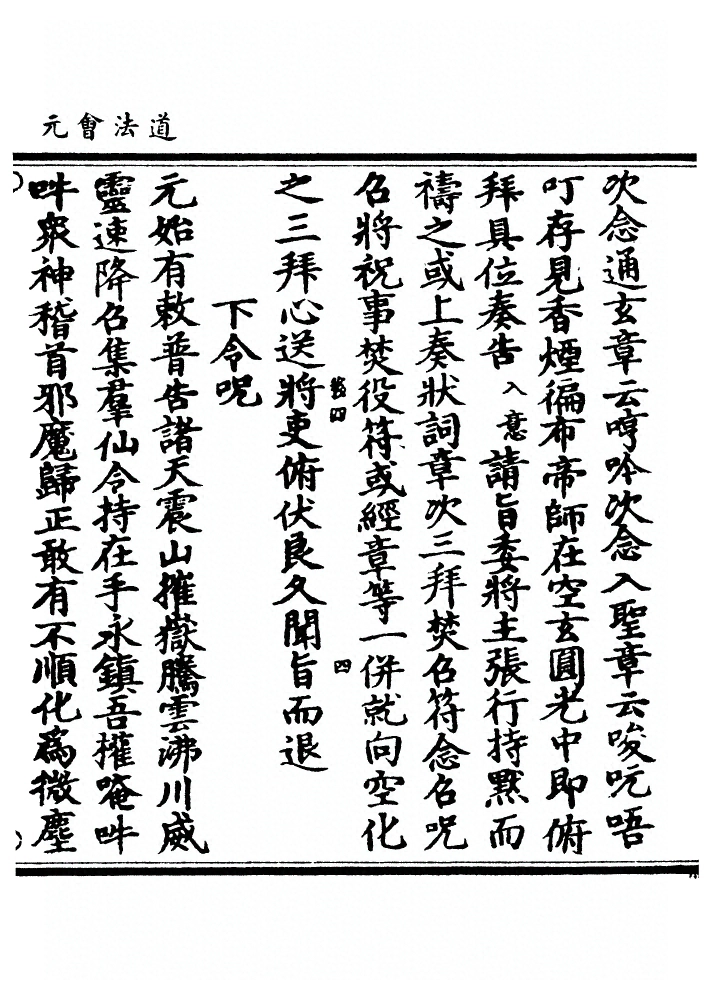 道法會元
次念通玄章云哼吟次念入聖章云唆吭唔
叮存見香煙徧布帝師在空玄圓光中即俯
拜具位奏告入意請旨委將主張行持默而
禱之或上奏狀詞章次三拜焚召符念召呪
召將祝事焚役符或經章等一併就向空化
卷四 四
之三拜心送將吏俯伏良久聞旨而退
下令呪
元始有敕普告諸天震山摧嶽騰雲沸川威
靈速降召集羣仙令持在手永鎮吾權唵吽
吽眾神稽首邪魔歸正敢有不順化為微塵